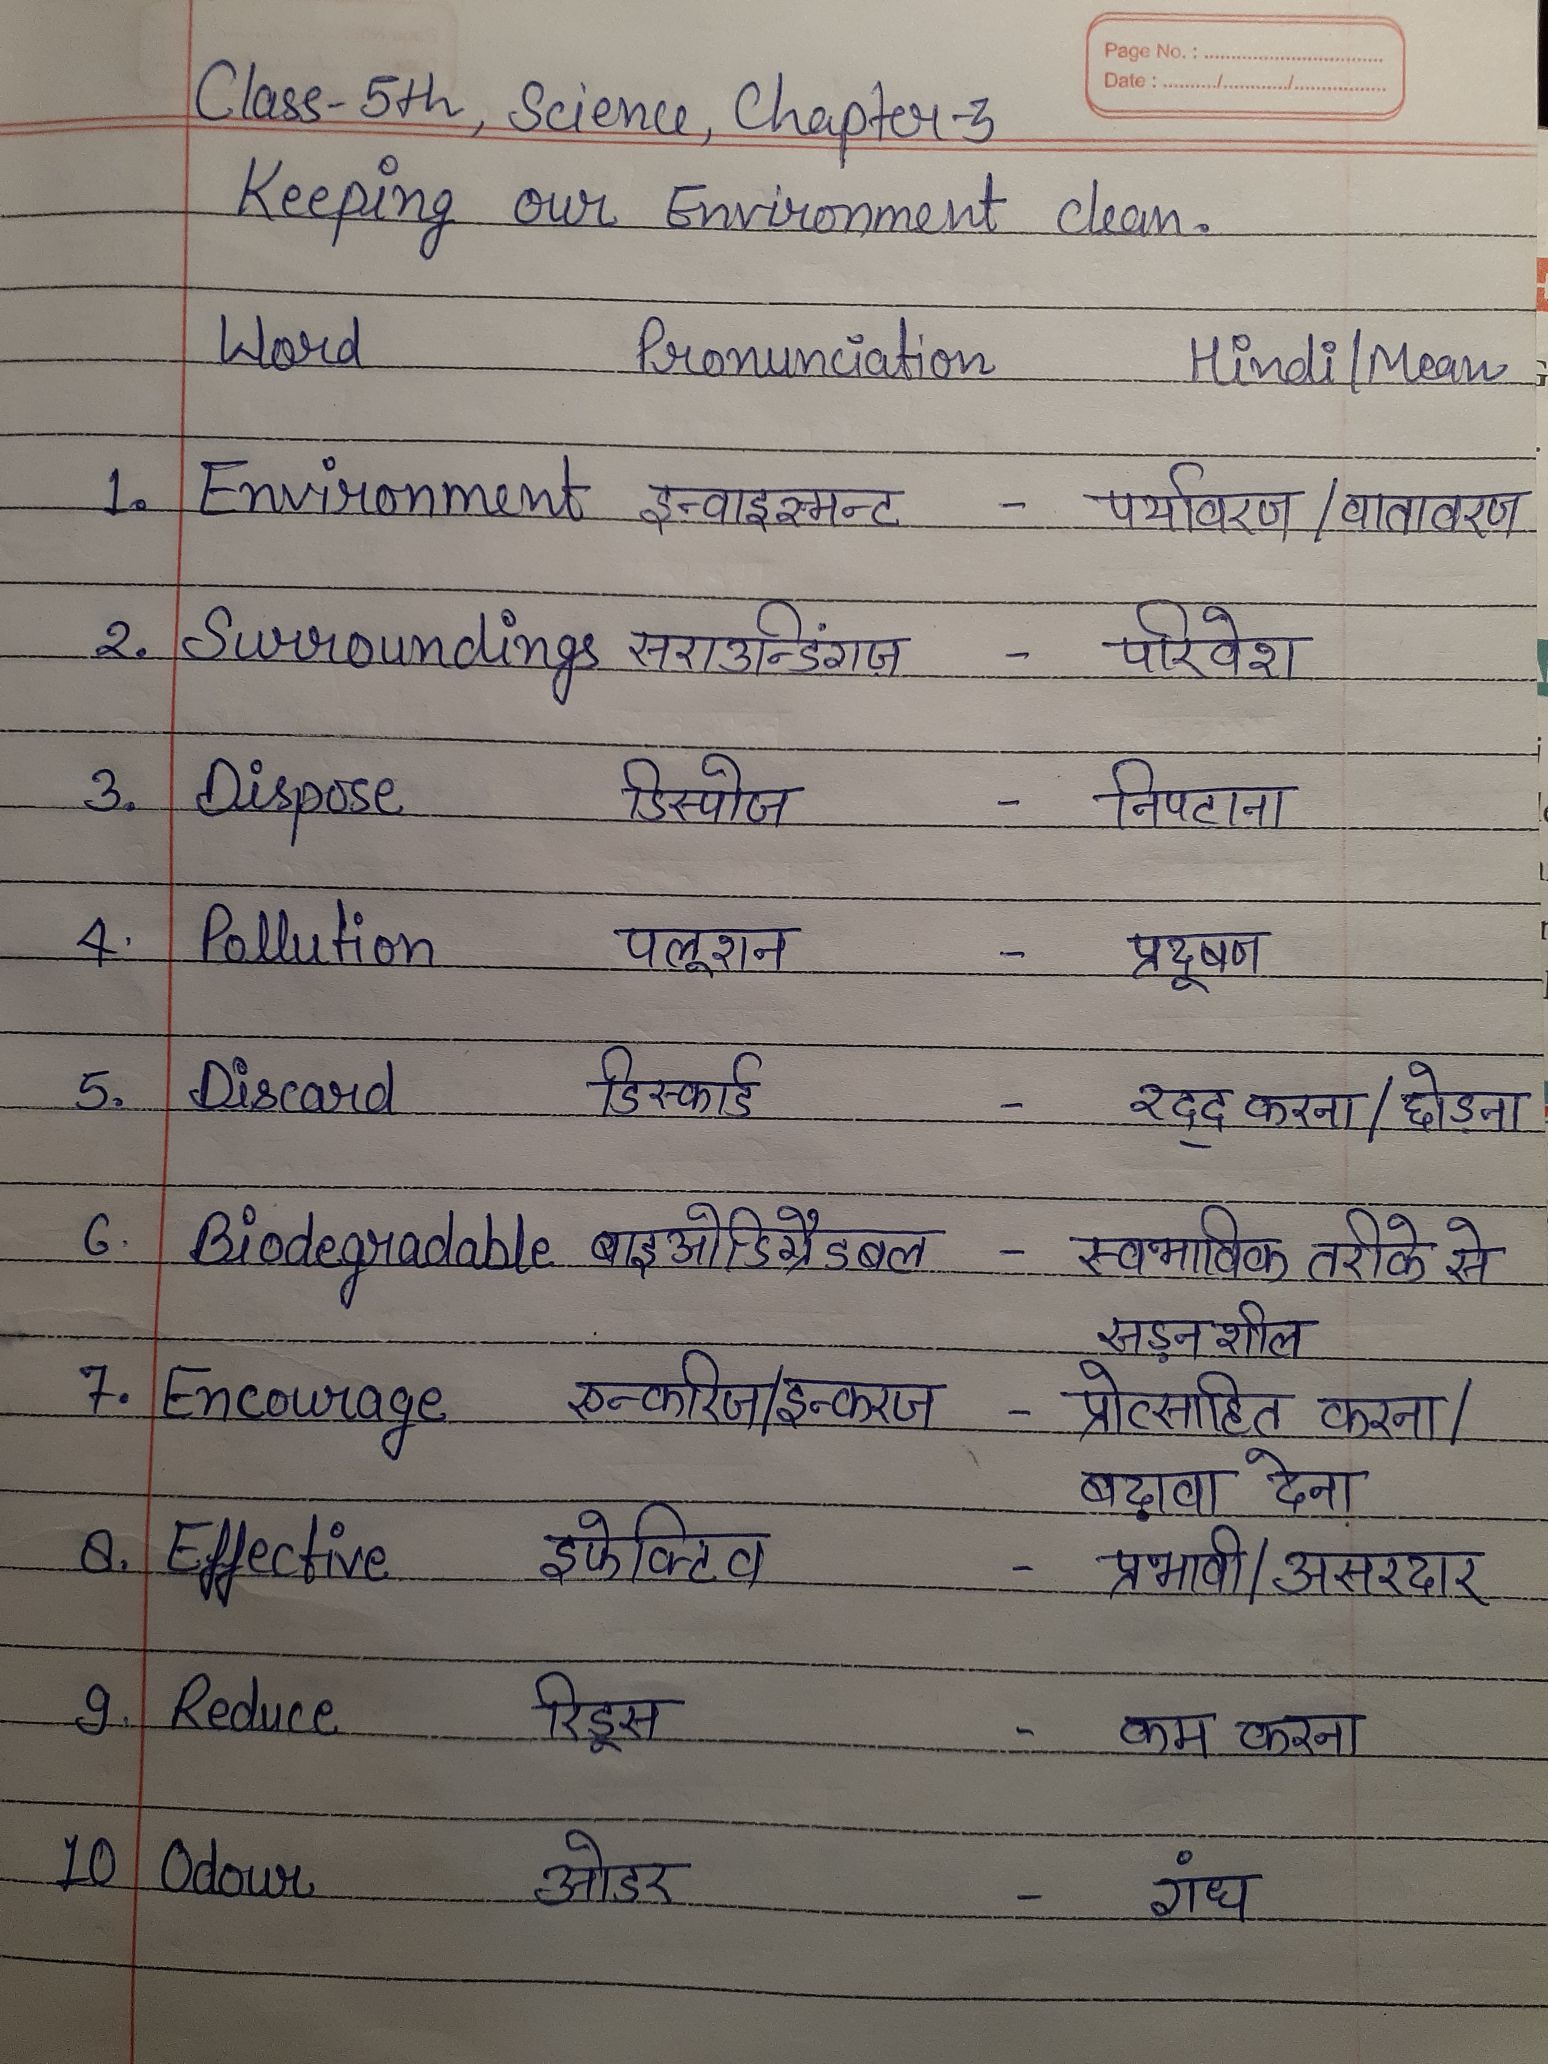 Page No. :
Date : / /
Class-5th, Science, Chapter-3
Keeping our Environment clean.
Word Pronunciation Hindi/Mean
1. Environment इन्वाइरमन्ट - पर्यावरण/वातावरण
2. Surroundings सराउन्डिंगज़ - परिवेश
3. Dispose डिस्पोज - निपटाना
4. Pollution पलूशन - प्रदूषण
5. Discard डिस्कार्ड - रद्द करना/छोड़ना
6. Biodegradable बाइओडिग्रैडबल - स्वभाविक तरीके से
सड़नशील
7. Encourage एन्करिज/इन्करज - प्रोत्साहित करना/
बढ़ावा देना
8. Effective इफेक्टिव - प्रभावी/असरदार
9. Reduce रिडूस - कम करना
10 Odour ओडर - गंध